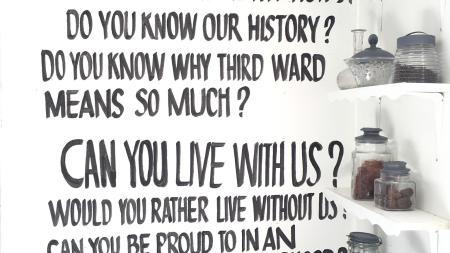 DO YOU KNOW OUR HISTORY?
DO YOU KNOW WHY THIRD WARD
MEANS SO MUCH?
CAN YOU LIVE WITH US?
WOULD YOU RATHER LIVE WITHOUT US?
CAN YOU BE PROUD TO IN AN